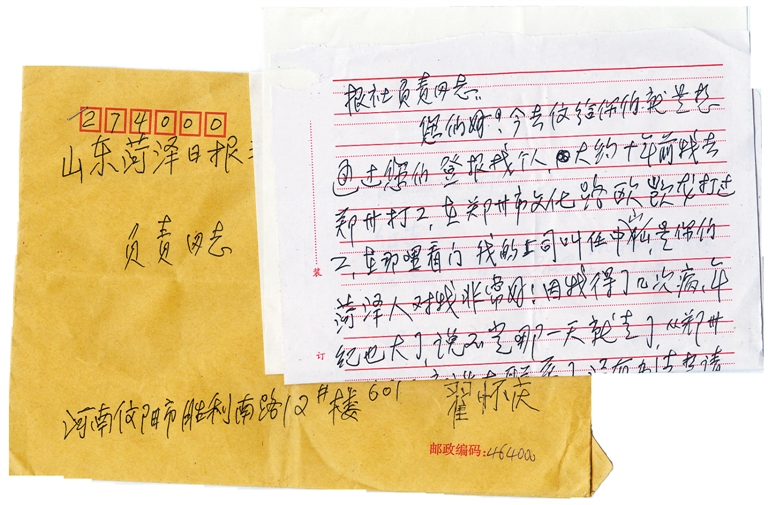 274000
山东菏泽日报
负责同志
河南信阳市胜利南路12#楼601 翟怀庆
邮政编码:464000
报社负责同志:
您们好!今去信给你们就是想
通过您们登报找个人,大约十年前我去
郑州打工,在郑州市文化路欧凯龙打过
工,在那里看门 我的上司叫任中 是你们
菏泽人对我非常好!因我得了几次病,年
纪也大了,说不定那一天就走了,从郑州
装
订